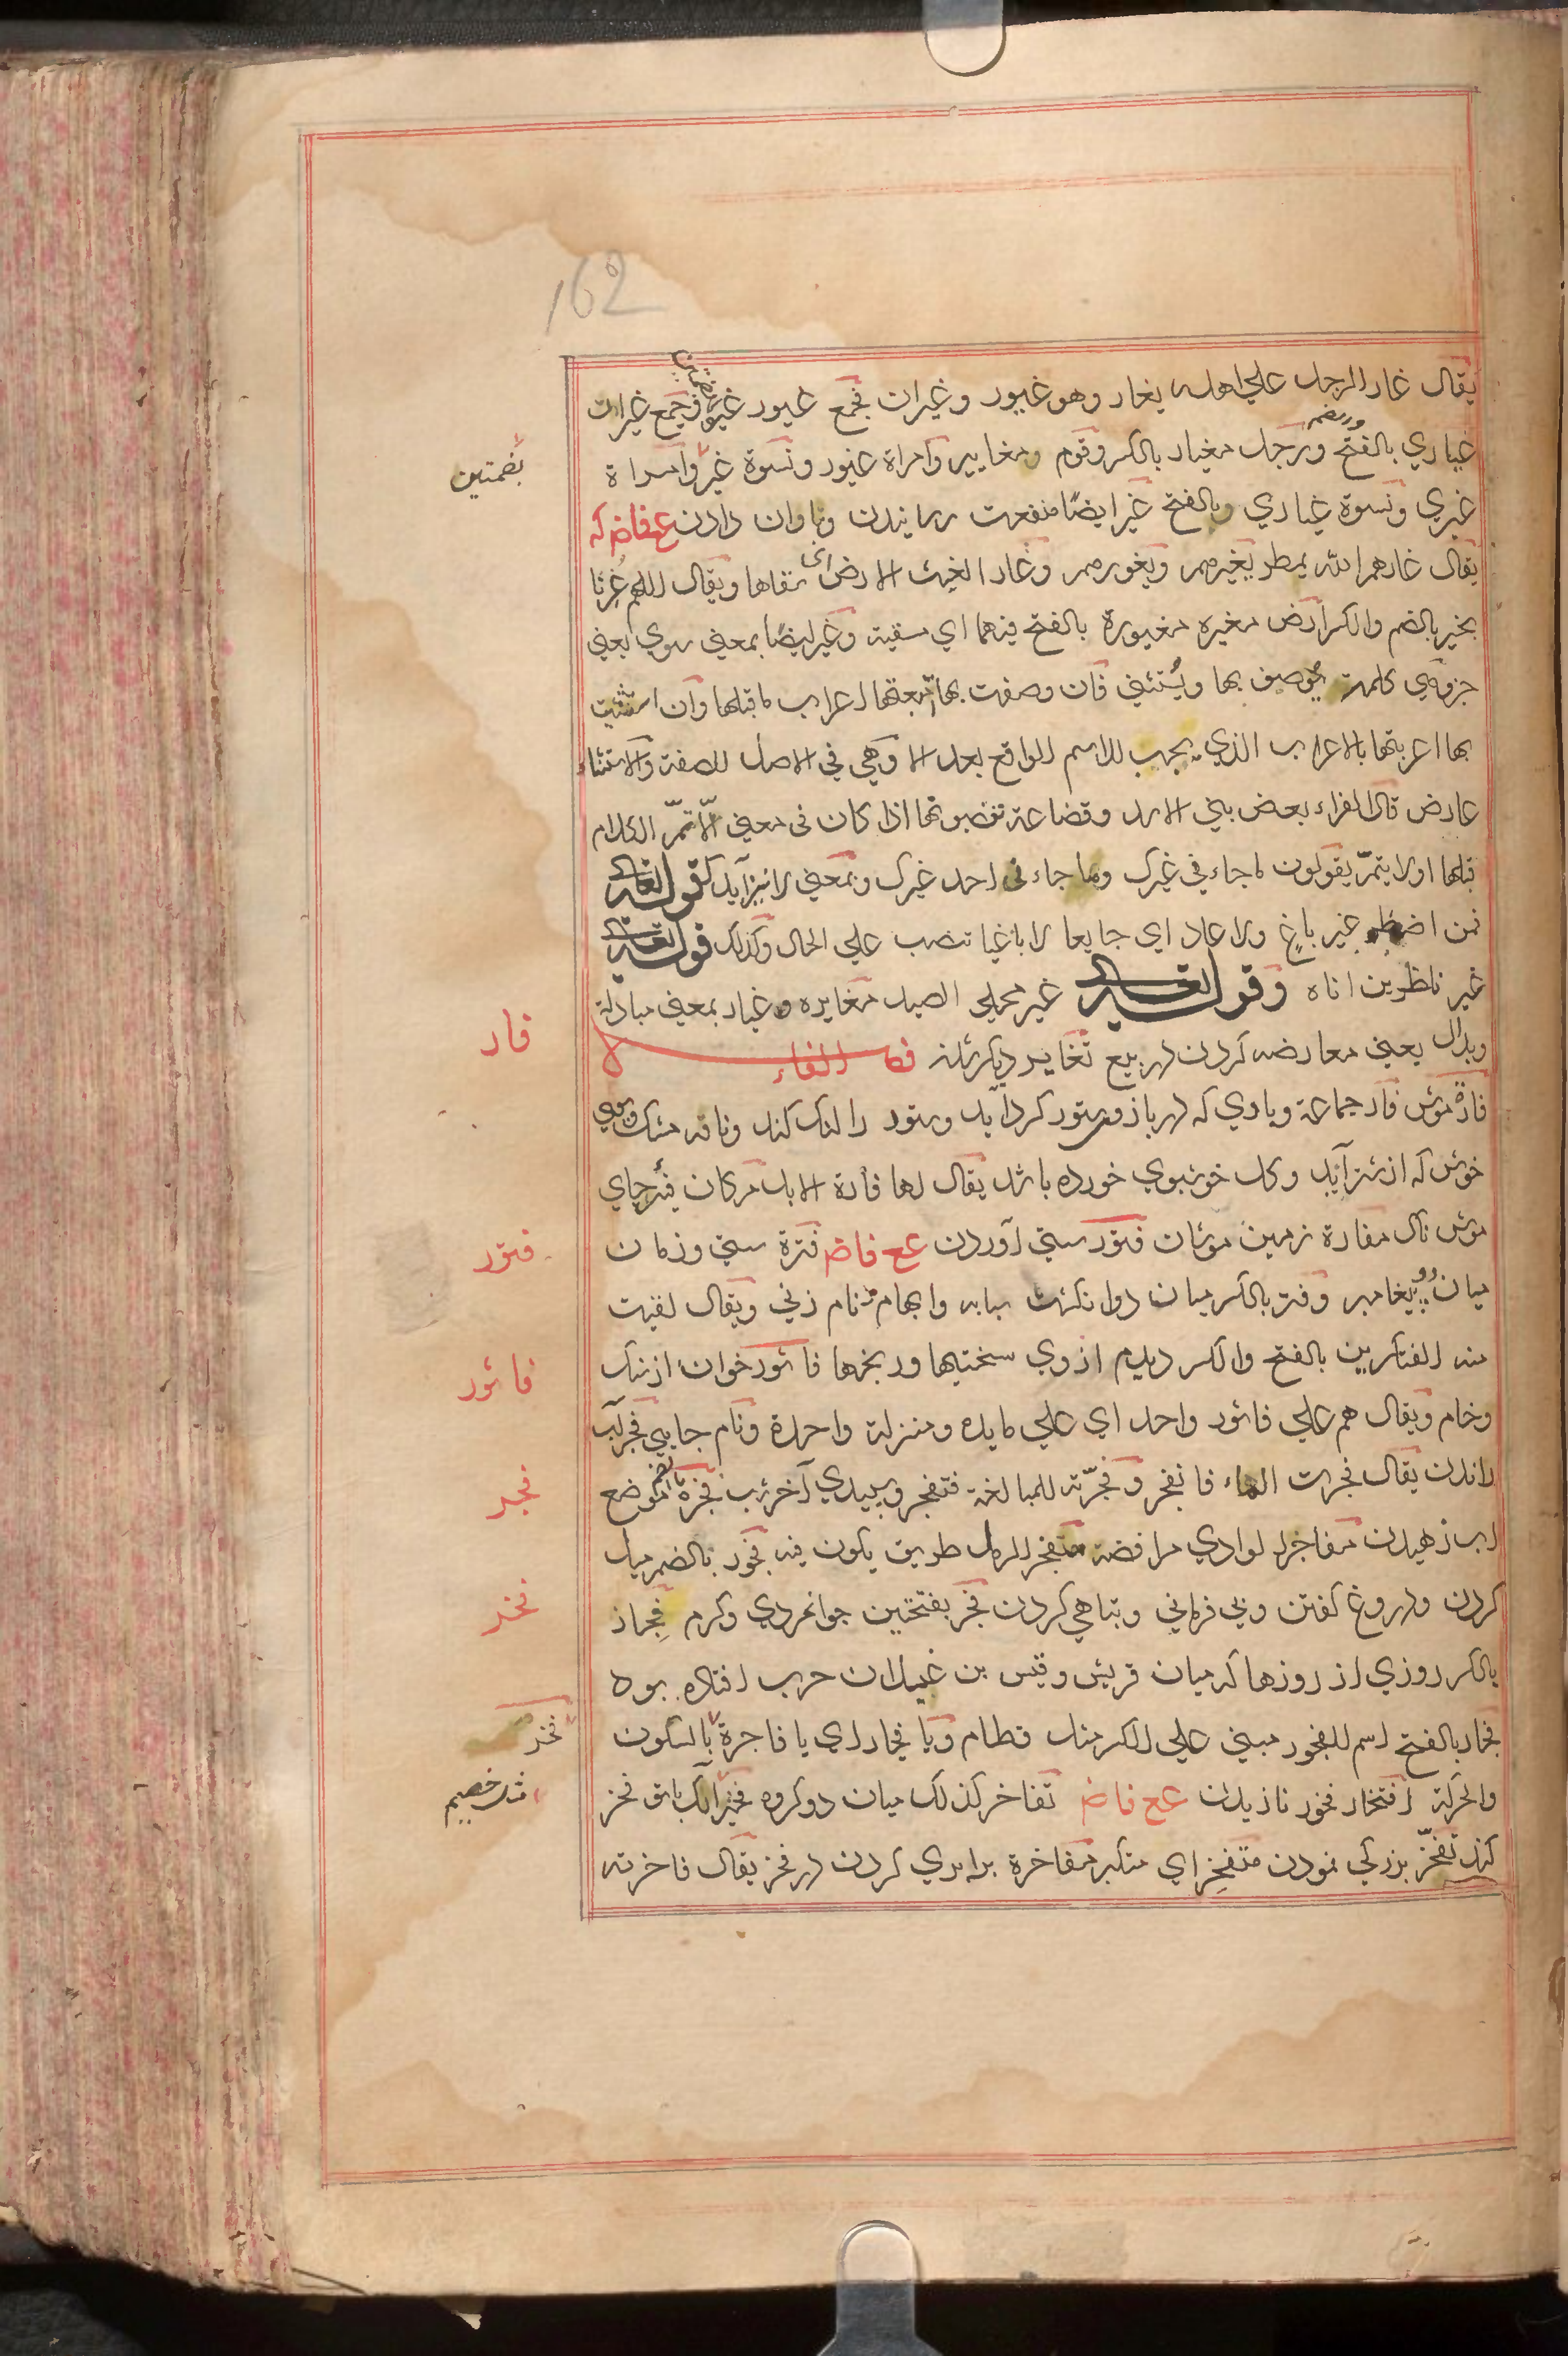 162
يقال غار الرجل علي اهله يغار وهو غيور وغيران فجمع غيور غير وجمع غيران
غياري بالفتح والضم ورجل مغيار بالكسر وقوم مغايير وامراة غيور ونسوة غير وامراة
بضمتين
غيري ونسوة غياري وبالفتح غير ايضًا منفعت رسانيدن وتاوان دادن ع فاض كه
يقال غارهم الله بمطر يغيرهم ويغورهم وغار الغيث الارض اي سقاها ويقال اللهم غُرنا
بخير بالضم والكسر ارض مغيره مغيورة بالفتح فيهما اي مسقية وغير ايضًا بمعني سوي يعني
جز وهي كلمة يُوصف بها ويُستثني فان وصفت بها اتبعتها اعراب ما قبلها وان استثنيت
بها اعربتها بالاعراب الذي يجب للاسم الواقع بعد الا وهي في الاصل للصفة والاستثناء
عارض قال الفراء بعض بني الاسد وقضاعة تنصبونها اذا كان في معني الّا تمّ الكلام
قبلها اولا يتمّ يقولون ما جاءني غيرك وما جاءني احد غيرك وبمعني لا نيز آيد كقوله تعالي
فمن اضطر غير باغٍ ولا عاد اي جايعا لا باغيا تنصب علي الحال وكذلك قوله تعالي
غير ناظرين اناه وقوله تعالي غير محلي الصيد مغايره وغيار بمعني مبادلة
وبدال يعني معارضه كردن در بيع تغاير ديكر شدن فصل الفاء
فار
فارة موش فار جماعة وبادي كه در بازو ستور كرد آيد وستور را لنك كند ونافه مشك وبوي
خوش كه از شتر آيد وكل خوشبوي خورده باشد يقال لها فارة الابل مكان فئر جاي
موش ناك مفارة زمين موشان فتور سستي آوردن ع ع فاض فترة سستي وزمان
فتور
ميان دو پيغامبر وفتر بالكسر ميان دو انكشت سبابه وابهام ونام زني ويقال لقيت
منه الفتكرين بالفتح والكسر ديدم ازوي سختيها ورنجها فاثور خوان از سنك
فاثور
ورخام ويقال هم علي فاثور واحد اي علي مايده ومنزلة واحدة ونام جايي فجر آب
راندن يقال فجرت الماء فانفجر وفجّرته للمبالغة فتفجر وسپيدي آخر شب فجرة بالضم موضع
فجر
اب زهيدن مفاجر الوادي مرافضه منفجر الرمل طريق يكون فيه فجور بالضم ميل
كردن ودروغ كفتن وبي فرماني وتباهي كردن فجر بفتحتين جوانمردي وكرم فجار از
فخر
بالكسر روزي از روزها كه ميان قريش وقيس بن غيلان حرب افتاده بود
فجار بالفتح اسم للفجور مبني علي الكسر مثل قطام ويا فجار اي يا فاجرة بالسكون
فخر
والحركة افتخار فخور نازيدن ع ع فاض تفاخر كذلك ميان دو كروه فخير آنك با تو فخر
مثل خصيم
كند تفخّر بزركي نمودن متفخّر اي متكبر مفاخرة برابري كردن در فخر يقال فاخرته